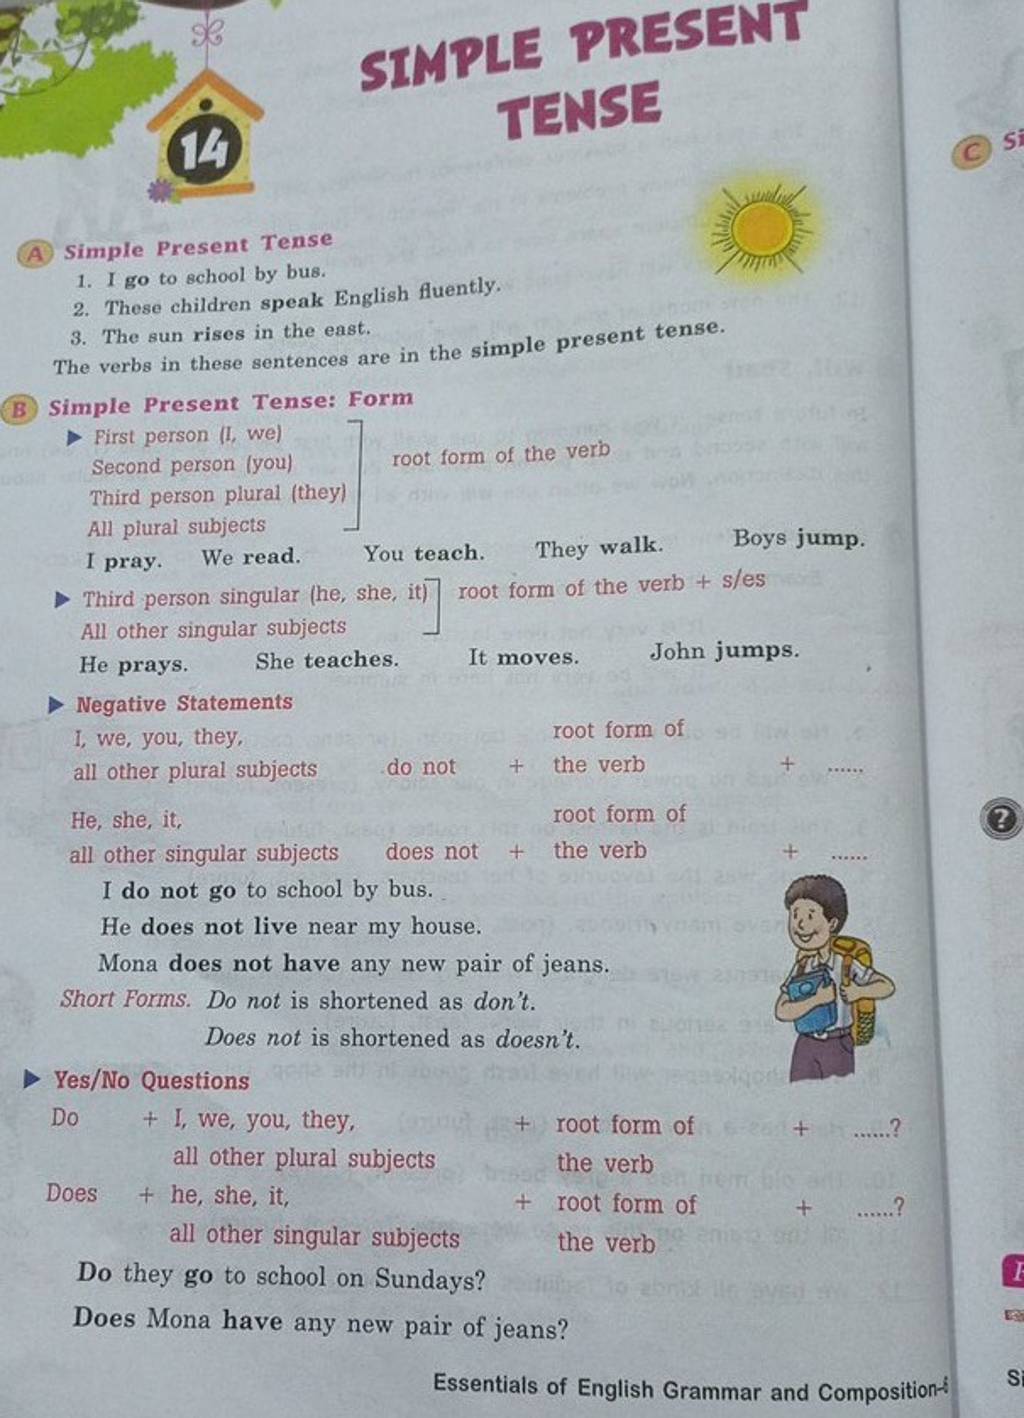 SIMPLE PRESENT
TENSE
14
A Simple Present Tense
1. I go to school by bus.
2. These children speak English fluently.
3. The sun rises in the east.
The verbs in these sentences are in the simple present tense.
B Simple Present Tense: Form
First person (I, we)
Second person (you)
root form of the verb
Third person plural (they)
All plural subjects
I pray. We read. You teach. They walk. Boys jump.
Third person singular (he, she, it) root form of the verb + s/es
All other singular subjects
He prays. She teaches. It moves. John jumps.
Negative Statements
I, we, you, they, root form of
all other plural subjects do not + the verb + ......
He, she, it, root form of
all other singular subjects does not + the verb + ......
I do not go to school by bus.
He does not live near my house.
Mona does not have any new pair of jeans.
Short Forms. Do not is shortened as don't.
Does not is shortened as doesn't.
Yes/No Questions
Do + I, we, you, they, + root form of + ......?
all other plural subjects the verb
Does + he, she, it, + root form of + ......?
all other singular subjects the verb
Do they go to school on Sundays?
Does Mona have any new pair of jeans?
Essentials of English Grammar and Composition-6
C Si
?
Si